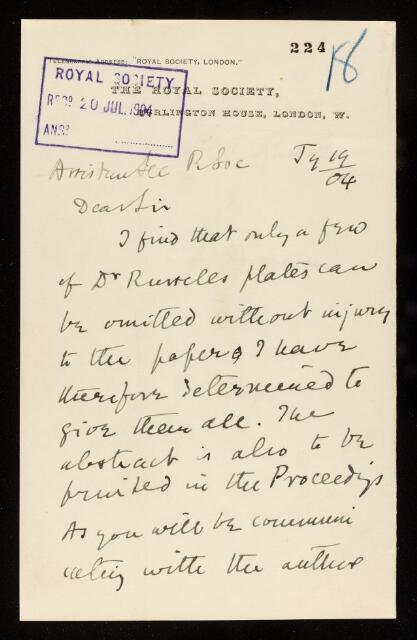 224
18
TELEGRAPHIC ADDRESS: "ROYAL SOCIETY, LONDON."
THE ROYAL SOCIETY,
BURLINGTON HOUSE, LONDON, W.
ROYAL SOCIETY
RECD. 20 JUL. 1904
ANSD.
Assistant Sec R Soc
Jy 19/04
Dear Sir
I find that only a few
of Dr Russells plates can
be omitted without injury
to the paper, I have
therefore determined to
give them all. The
abstract is also to be
printed in the Proceedigs
As you will be communi
cating with the author